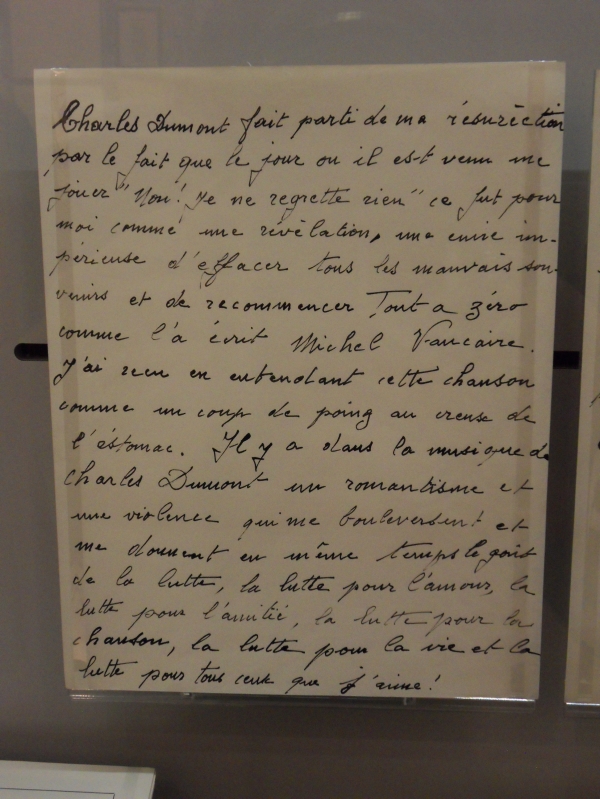 Charles Dumont fait parti de ma résurèction
par le fait que le jour ou il est venu me
jouer "Non! Je ne regrette rien" ce fut pour
moi comme une révèlation, une envie im-
périeuse d'effacer tous les mauvais sou-
venirs et de recommencer Tout a zéro
comme l'a écrit Michel Vaucaire.
J'ai recu en entendant cette chanson
comme un coup de poing au creuse de
l'éstomac. Il y a dans la musique de
Charles Dumont un romantisme et
une violence qui me bouleversent et
me donnent en même temps le goût
de la lutte, la lutte pour l'amour, la
lutte pour l'amitié, la lutte pour la
chanson, la lutte pour la vie et la
lutte pour tous ceux que j'aime!